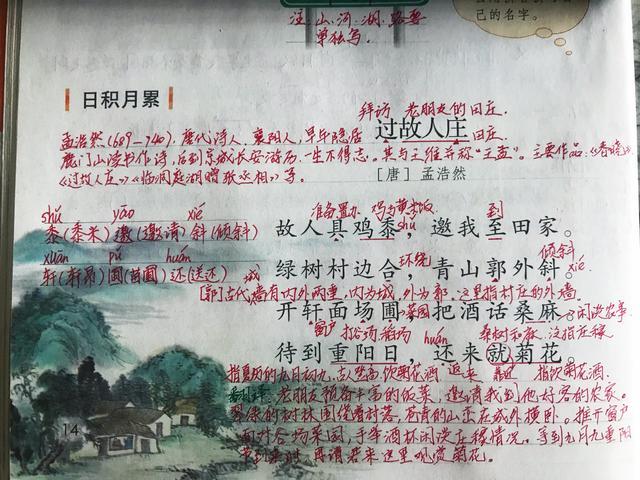 注:山、河、湖、路要
单独写.
己的名字。
日积月累
拜访 老朋友的田庄.
过故人庄
田庄.
孟浩然(689—740),唐代诗人.襄阳人,早年隐居
鹿门山读书作诗,后到京城长安游历,一生不得志。其与王维并称“王孟”.主要作品:《春晓》
《过故人庄》《临洞庭湖赠张丞相》等.
[唐] 孟浩然
shǔ yāo xié
黍(黍米) 邀(邀请) 斜(倾斜)
准备置办 鸡与黄米饭. 到
故人具鸡黍,邀我至田家。
shǔ
xuān pǔ huán
轩(轩昂) 圃(苗圃) 还(送还)
环绕 倾斜
绿树村边合,青山郭外斜。
xié.
[郭]古代城墙有内外两重,内为城,外为郭.这里指村庄的外墙.
开轩面场圃,把酒话桑麻。
菜园 闲谈农事.
窗户 打谷场 稻场 huán 桑树和麻.这指庄稼
待到重阳日,还来就菊花。
指夏历的九月初九,古人登高饮菊花酒 返来 靠近 指饮菊花酒.
老朋友预备丰富的饭菜,邀请我到他好客的农家.
翠绿的树林围绕着村落,苍青的山峦在城外横卧.推开窗户
面对谷场菜园,手举酒杯闲谈庄稼情况.等到九月九重阳
节到来时,再请君来这里观赏菊花.
14